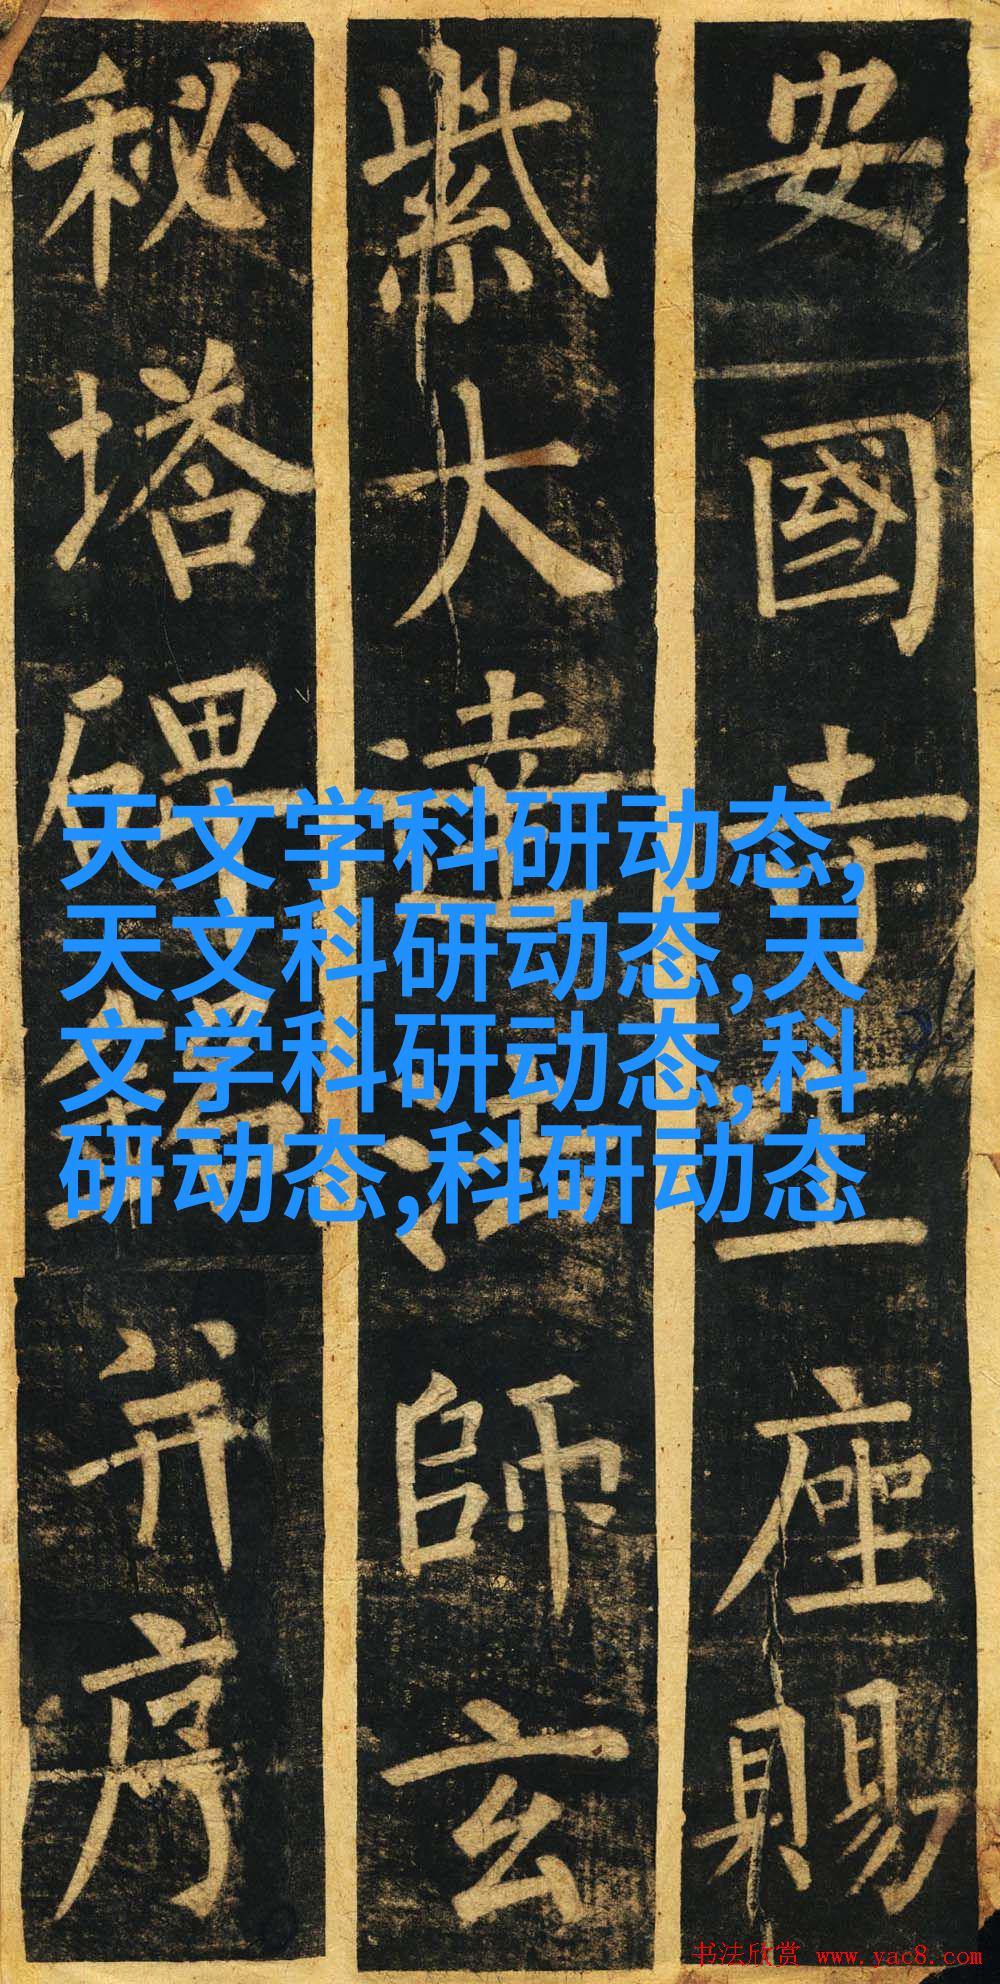 安國寺上座賜
紫大達法師玄
秘塔碑銘并序
天文学科研动态,
天文科研动态,天
文学科研动态,科
研动态,科研动态
书法欣赏 www.yac8.com